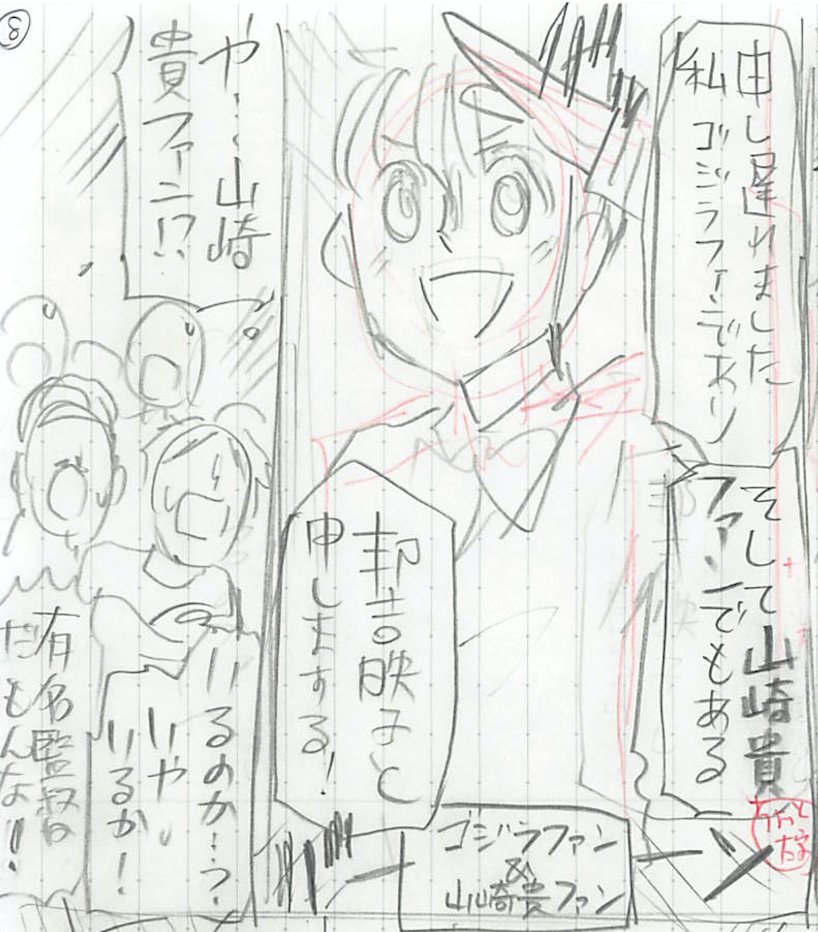 申し遅れました
私ゴジラファンであり
そして山崎貴
ファンでもある
邦吉映子と
申しまする!
ゴジラファン
&
山崎貴ファン
バーン
や…山崎
貴ファン!?
いるのか!?
いや
いるか!
有名監督
だもんな!!
8